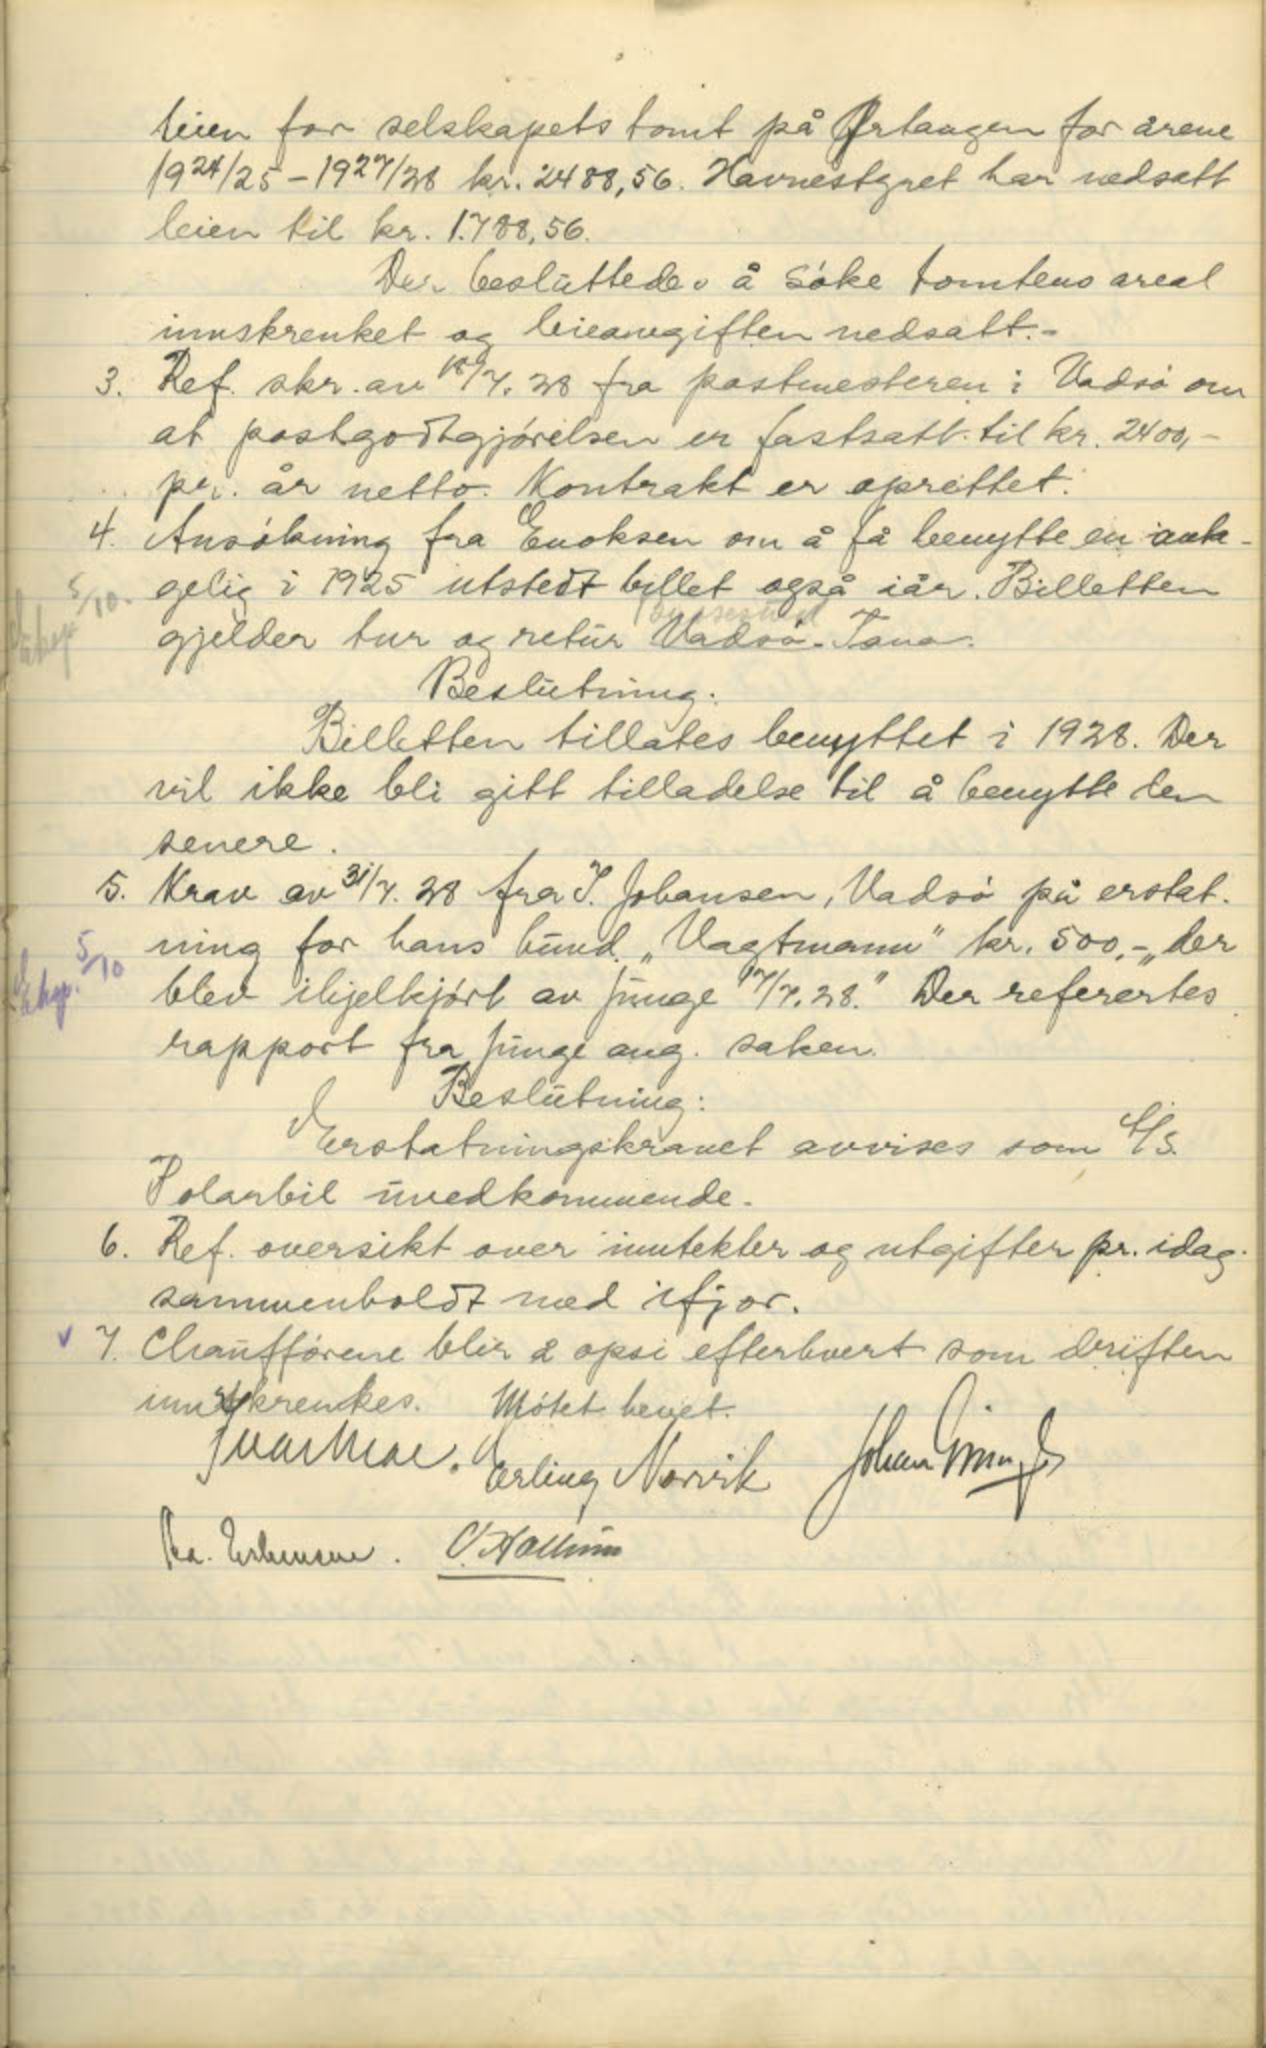 leien for selskapets tomt på Ørtangen for årene
1924/25 – 1927/28 kr. 2488,56. Havnestyret har nedsatt
leien til kr. 1.788,56.
Der beslüttedes å søke tomtens areal
innskrenket og leieavgiften nedsatt.–
3. Ref. skr. av 18/7. 28 fra postmesteren i Vadsø om
at postgodtgjørelsen er fastsatt til kr. 2400,–
pr. år netto. Kontrakt er oprettet.
4. Ansøkning fra Enoksen om å få benytte en
gelig i 1925 utstedt billet også iår. Billetten
gjelder tur og retür Vadsø – Tana.
5/10.
Beslütning:
Billetten tillates benyttet i 1928. Der
vil ikke bli gitt tilladelse til å benytte den
senere.
5. Krav av 31/7. 28 fra J. Johansen, Vadsø på erstat-
ning for hans hünd „Vagtmann" kr. 500,– „der
blev ihjelkjørt av Jünge 17/7. 28." Der refertes
rapport fra Jünge ang. saken.
Eksp. 5/10
Beslütning:
Erstatningskravet avvises som A/S.
Polarbil üvedkommende.
6. Ref. oversikt over inntekter og utgifter pr. idag
sammenholdt med ifjor.
v 7. Chaüfførene blir å opsi efterhvert som driften
innskrenkes. Møtet hevet.
Erling Norvik